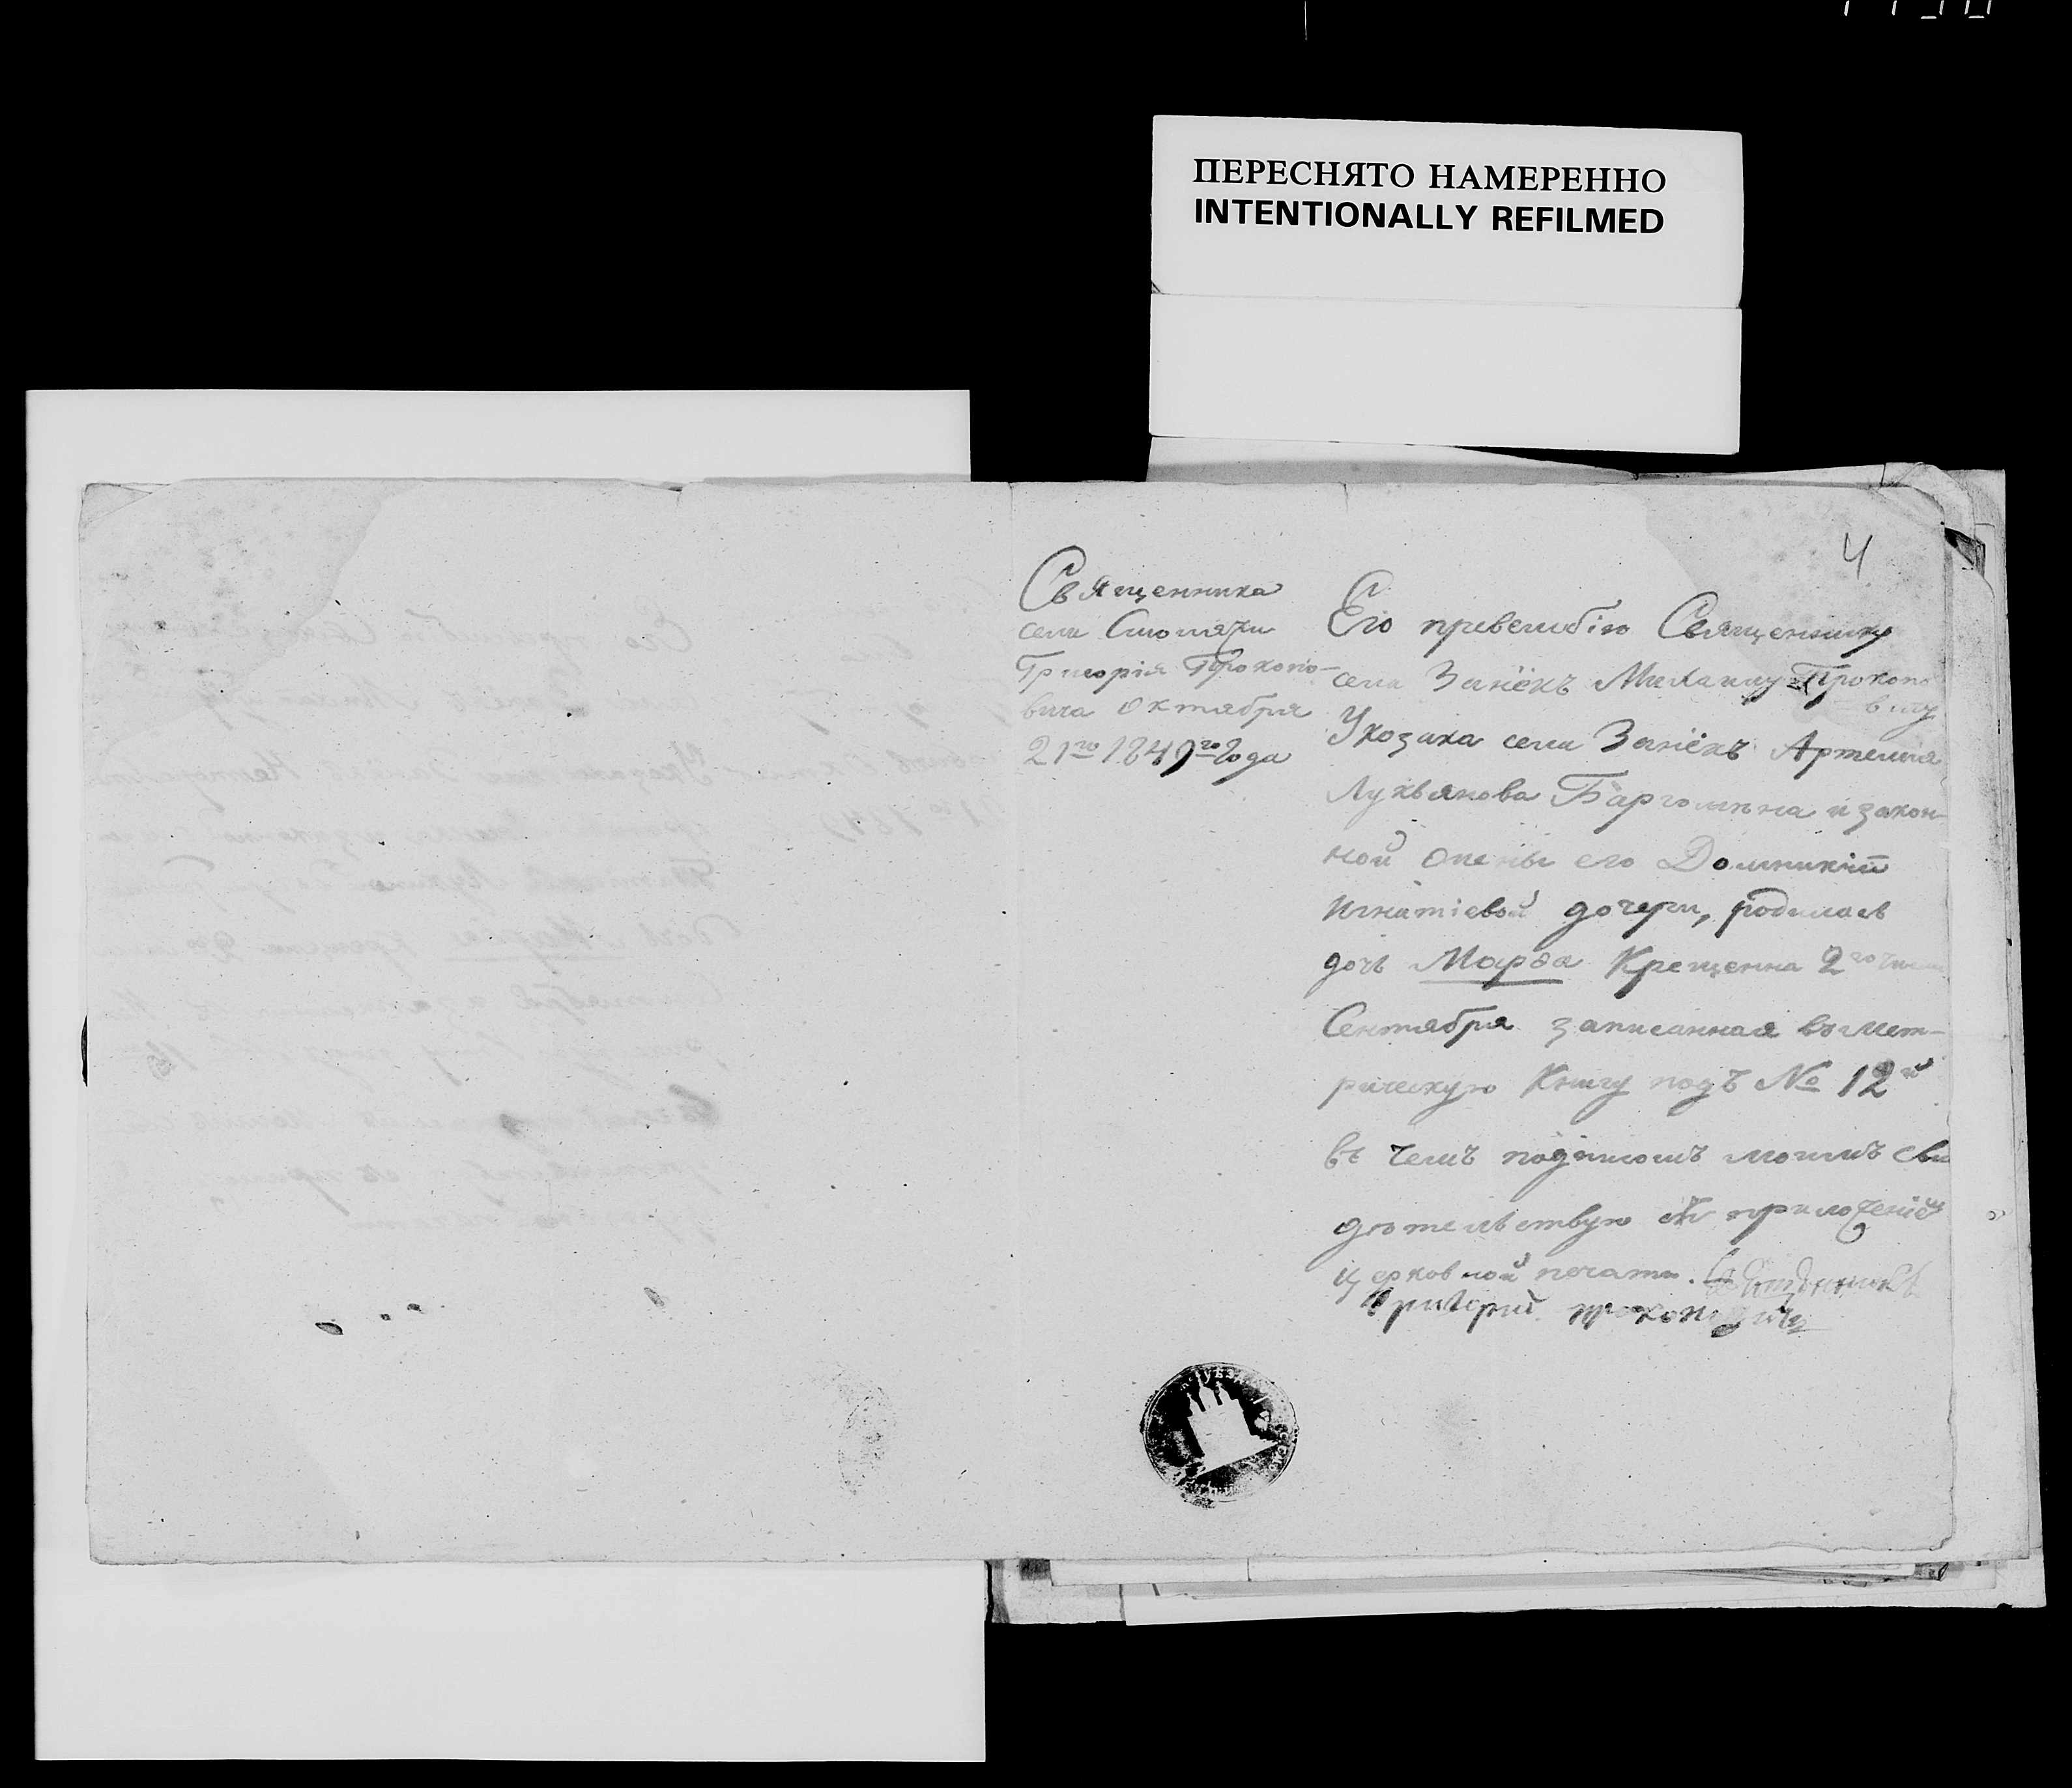 ПЕРЕСНЯТО НАМЕРЕННО
INTENTIONALLY REFILMED
4
Священника
села
Григорія Прокопо-
вича Октября
21го 1849го года
Его превелебію Священнику
села Занёкъ Михаилу Прокопо
вичу
У козака села Занёкъ Артемія
Лукьянова и закон-
ной его Домникіи
Игнатіевой дочери, родилась
дочь Марѳа Крещенна 2го числа
Сентября записанная въ мет-
рическую Книгу подъ № 12й
въ чемъ подписомъ моимъ сви
дѣтельствую съ приложеніемъ
церковной печати. Священникъ
Григорий Прокоповичъ